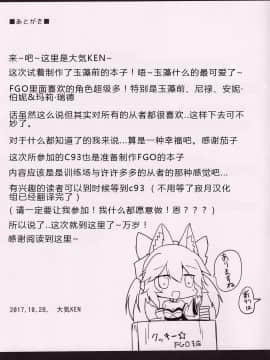 ■あとがき■
来~吧~这里是大気KEN~
这次试着制作了玉藻前的本子！唔~玉藻什么的最可爱了~
FGO里面喜欢的角色超级多！特别是玉藻前、尼禄、安妮·
伯妮&玛莉·瑞德
话虽然这么说但其实对所有的从者都很喜欢...这样下去可不
妙了。
对于什么都知道了的我来说...算是一种幸福吧。感谢茄子
这次所参加的C93也是准备制作FGO的本子
内容应该是是训练场与许许多多的从者的那种感觉吧...
有兴趣的读者可以到时候等到c93 （不用等了寂月汉化
组已经翻译完了）
（请一定要让我参加！我什么都愿意做！恩？？？）
所以说了..这次就到这里了~万岁！
感谢阅读到这里~
2017,10,28, 大気KEN
クッキー☆
FGO3店